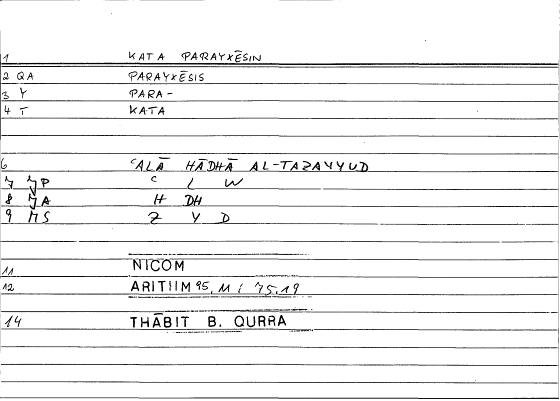 1 KATA PARAYXĒSIN
2 QA PARAYXĒSIS
3 Y PARA-
4 T KATA
6 ʿALĀ HĀDHĀ AL-TAZAYYUD
7 P ʿ L W
8 A H DH
9 S Z Y D
11 NICOM
12 ARITHM 95, M : 75.19
14 THĀBIT B. QURRA